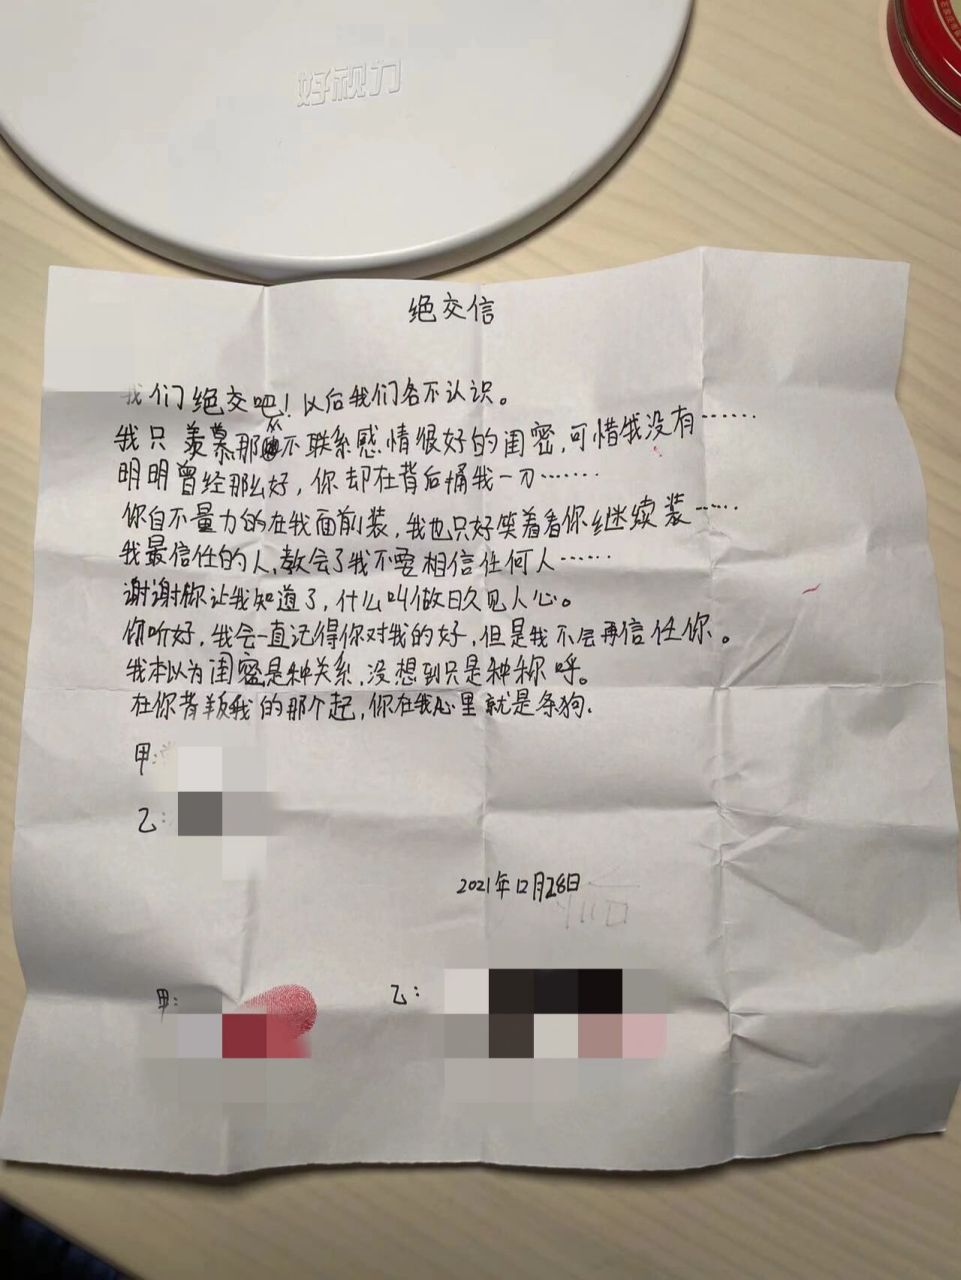 好视力
绝交信
我们绝交吧！以后我们各不认识。
我只羡慕那从不联系感情很好的闺密，可惜我没有……
明明曾经那么好，你却在背后捅我一刀……
你自不量力的在我面前装，我也只好笑着看你继续装……
我最信任的人，教会了我不要相信任何人……
谢谢你让我知道了，什么叫做日久见人心。
你听好，我会一直记得你对我的好，但是我不会再信任你。
我本以为闺密是种关系，没想到只是种称呼。
在你背叛我的那个起，你在我心里就是条狗.
甲：
乙：
2021年12月28日
甲：
乙：